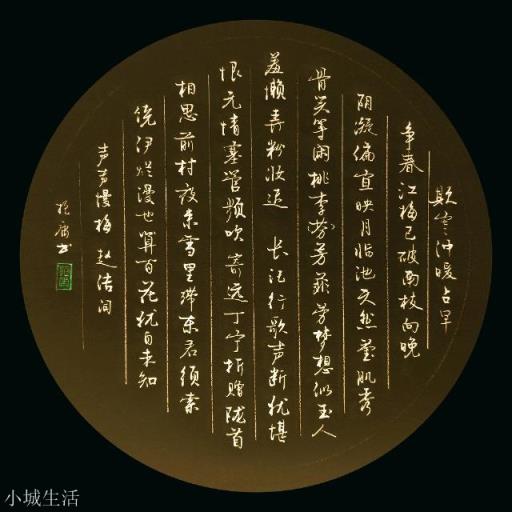 欺雪冲暖占早
争春江梅已破南枝向晚
阴凝偏宜映月临池天然莹肌秀
骨笑等闲桃李芬芳菲劳梦想似玉人
羞懒弄粉妆迟 长记行歌声断犹堪
恨无情塞管频吹寄远丁宁折赠陇首
相思前村夜来雪里滞东君须索
饶伊烂漫也算百花犹自未知
声声慢梅 赵
书
小城生活